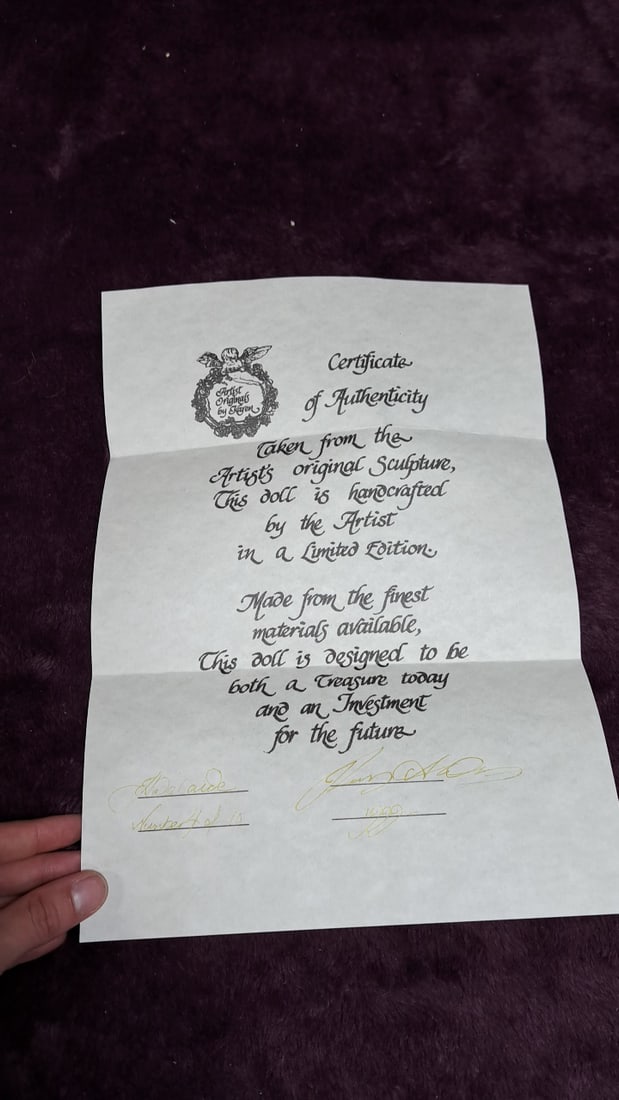 Artist
Originals
by Karen
Certificate
of Authenticity
Taken from the
Artist's original Sculpture,
This doll is handcrafted
by the Artist
in a Limited Edition.
Made from the finest
materials available,
This doll is designed to be
both a Treasure today
and an Investment
for the future
Adelaide
Number 4 of